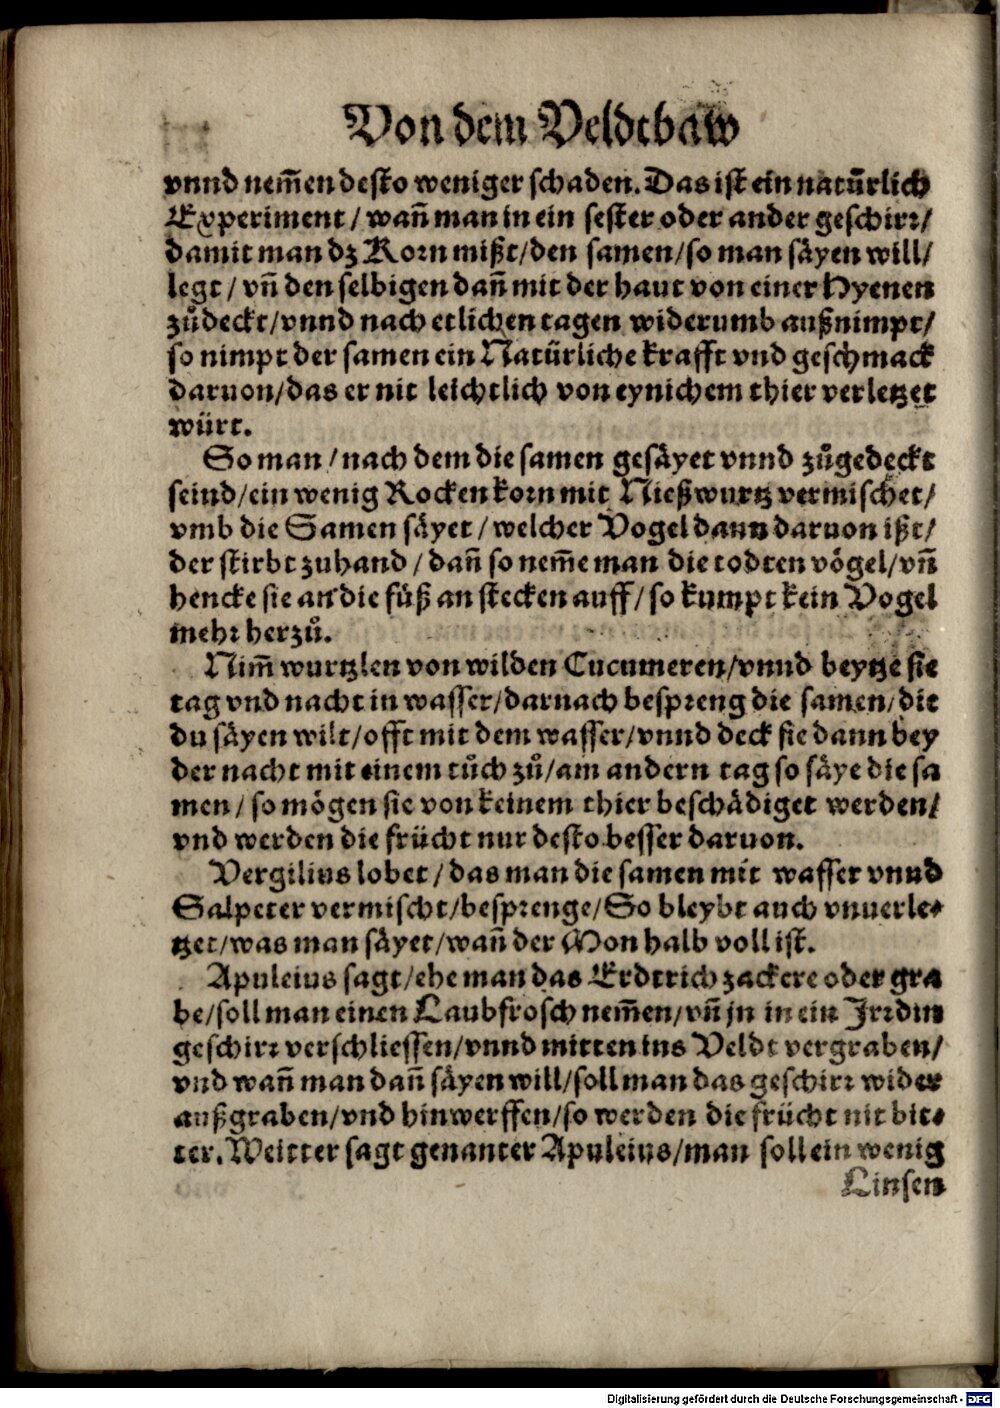 Von dem Veldtbaw
vnnd nem̃en desto weniger schaden. Das ist ein natürlich
Experiment / wañ man in ein sester oder ander geschirr/
damit man dz Korn mißt/den samen/so man säyen will/
legt / vñ den selbigen dañ mit der haut von einer Hyenen
zůdeckt/vnnd nach etlichen tagen widerumb außnimpt/
so nimpt der samen ein Natürliche krafft vnd geschmack
daruon/das er nit leichtlich von eynichem thier verletzet
würt.
So man / nach dem die samen gesäyet vnnd zůgedeckt
seind/ein wenig Rocken korn mit Nießwurtz vermischet/
vmb die Samen säyet / welcher Vogel dann daruon ißt/
der stirbt zuhand / dañ so nem̃e man die todten vögel/vñ
hencke sie an die füß an stecken auff / so kumpt kein Vogel
mehr herzů.
Nim̃ wurtzlen von wilden Cucumeren/vnnd beytze sie
tag vnd nacht in wasser/darnach bespreng die samen/die
du säyen wilt/offt mit dem wasser/vnnd deck sie dann bey
der nacht mit einem tůch zů/am andern tag so säye die sa
men / so mögen sie von keinem thier beschädiget werden/
vnd werden die frücht nur desto besser daruon.
Vergilius lobet / das man die samen mit wasser vnnd
Salpeter vermischt/besprenge/So bleybt auch vnuerle⸗
tzet/was man säyet/wañ der Mon halb voll ist.
Apuleius sagt/ehe man das Erdtrich zackere oder gra
be/soll man einen Laubfrosch nem̃en/vñ jn in ein Jrrdin
geschirr verschliessen/vnnd mitten ins Veldt vergraben/
vnd wañ man dañ säyen will/soll man das geschirr wider
außgraben/vnd hinwerffen/so werden die frücht nit bit⸗
ter. Weitter sagt genanter Apuleius/man soll ein wenig
Linsen
Digitalisierung gefördert durch die Deutsche Forschungsgemeinschaft - DFG